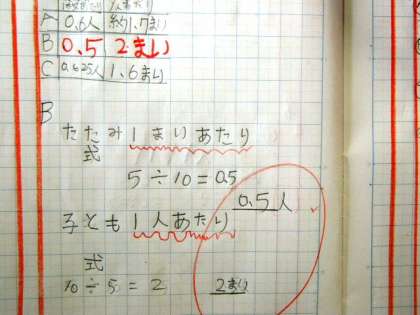 A 0.6人 約1.7まい
B 0.5 2まい
C 0.625人 1.6まい
B
たたみ1まいあたり
式
5÷10=0.5
0.5人
子ども1人あたり
式
10÷5=2
2まい